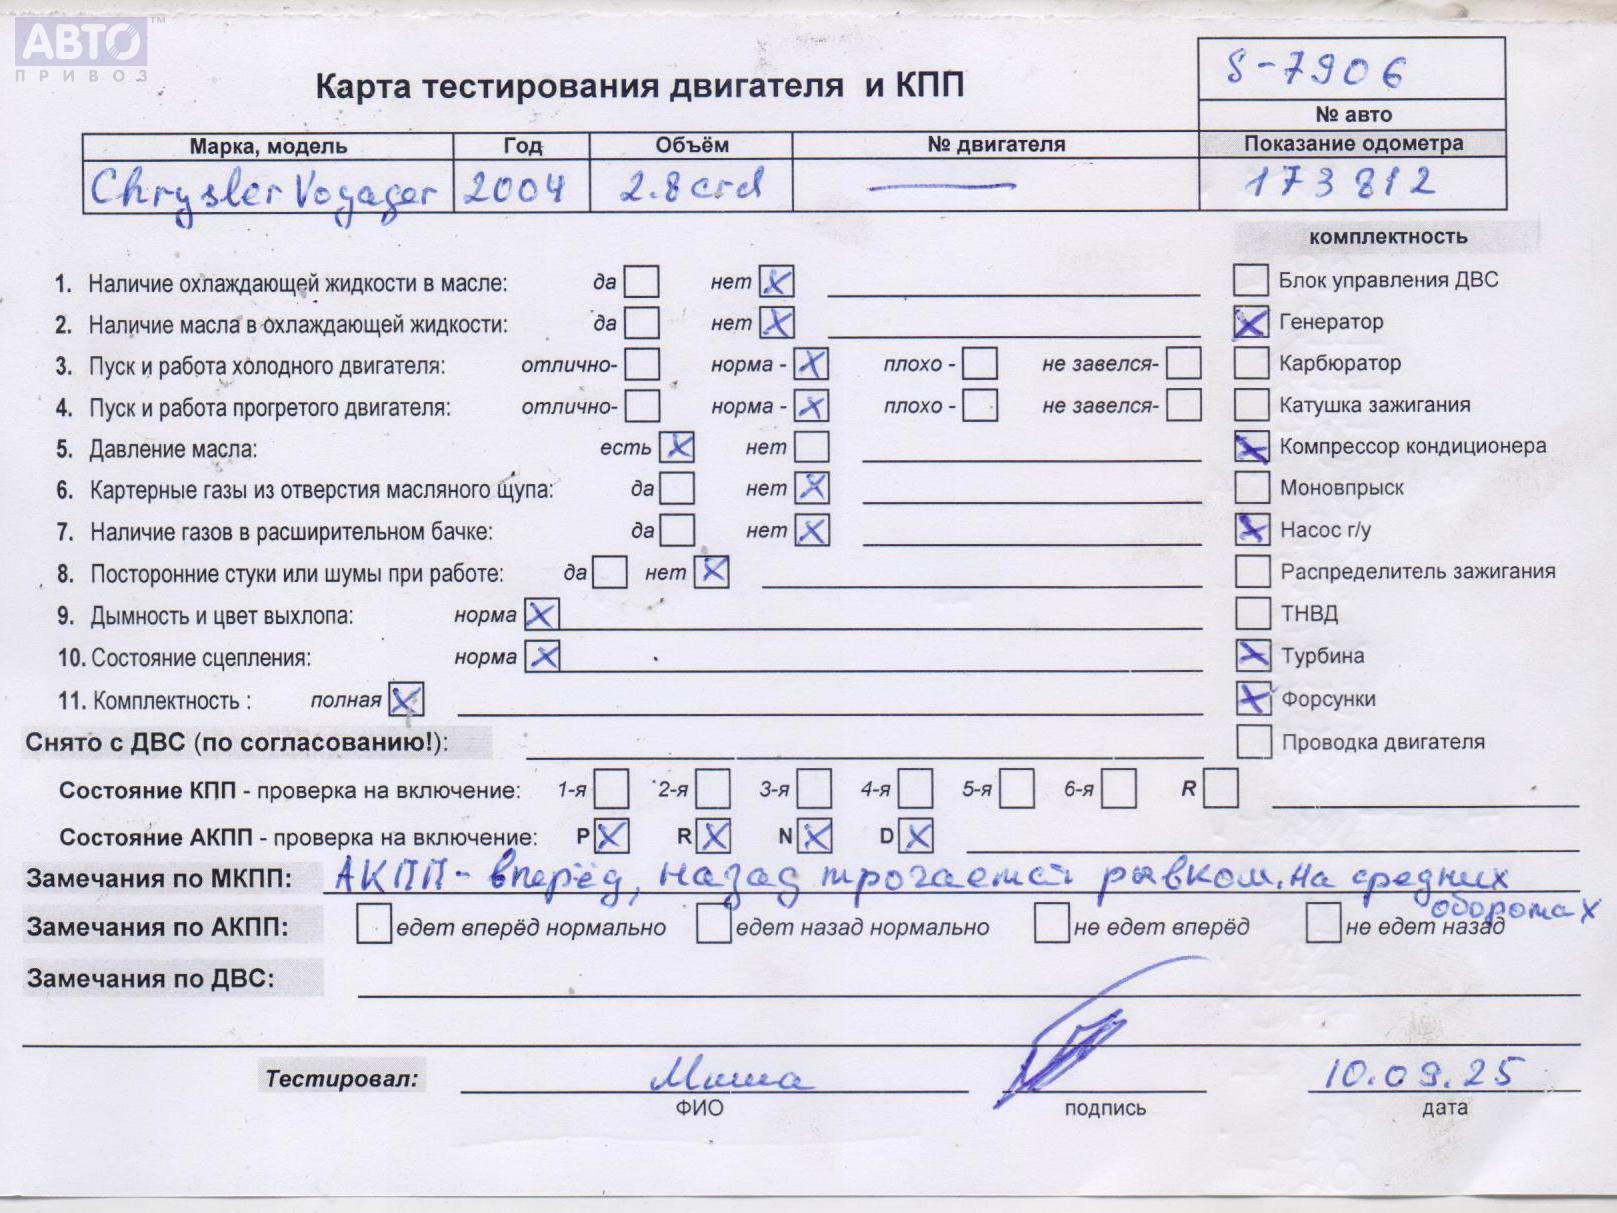 АВТО™
ПРИВОЗ
S-7906
Карта тестирования двигателя и КПП
№ авто
Марка, модель Год Объём № двигателя Показание одометра
Chrysler Voyager 2004 2.8 crd — 173 812
комплектность
1. Наличие охлаждающей жидкости в масле: да нет X Блок управления ДВС
2. Наличие масла в охлаждающей жидкости: да нет X X Генератор
3. Пуск и работа холодного двигателя: отлично- норма - X плохо - не завелся- Карбюратор
4. Пуск и работа прогретого двигателя: отлично- норма - X плохо - не завелся- Катушка зажигания
5. Давление масла: есть X нет X Компрессор кондиционера
6. Картерные газы из отверстия масляного щупа: да нет X Моновпрыск
7. Наличие газов в расширительном бачке: да нет X X Насос г/у
8. Посторонние стуки или шумы при работе: да нет X Распределитель зажигания
9. Дымность и цвет выхлопа: норма X ТНВД
10. Состояние сцепления: норма X X Турбина
11. Комплектность : полная X X Форсунки
Снято с ДВС (по согласованию!): Проводка двигателя
Состояние КПП - проверка на включение: 1-я 2-я 3-я 4-я 5-я 6-я R
Состояние АКПП - проверка на включение: P X R X N X D X
Замечания по МКПП: АКПП - вперёд, назад трогается рывком. На средних
оборотах
Замечания по АКПП: едет вперёд нормально едет назад нормально не едет вперёд не едет назад
Замечания по ДВС:
Тестировал: Миша 10.09.25
ФИО подпись дата